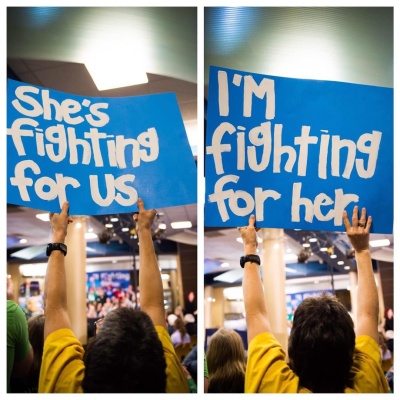 She's
fighting
for us
I'M
fighting
for her